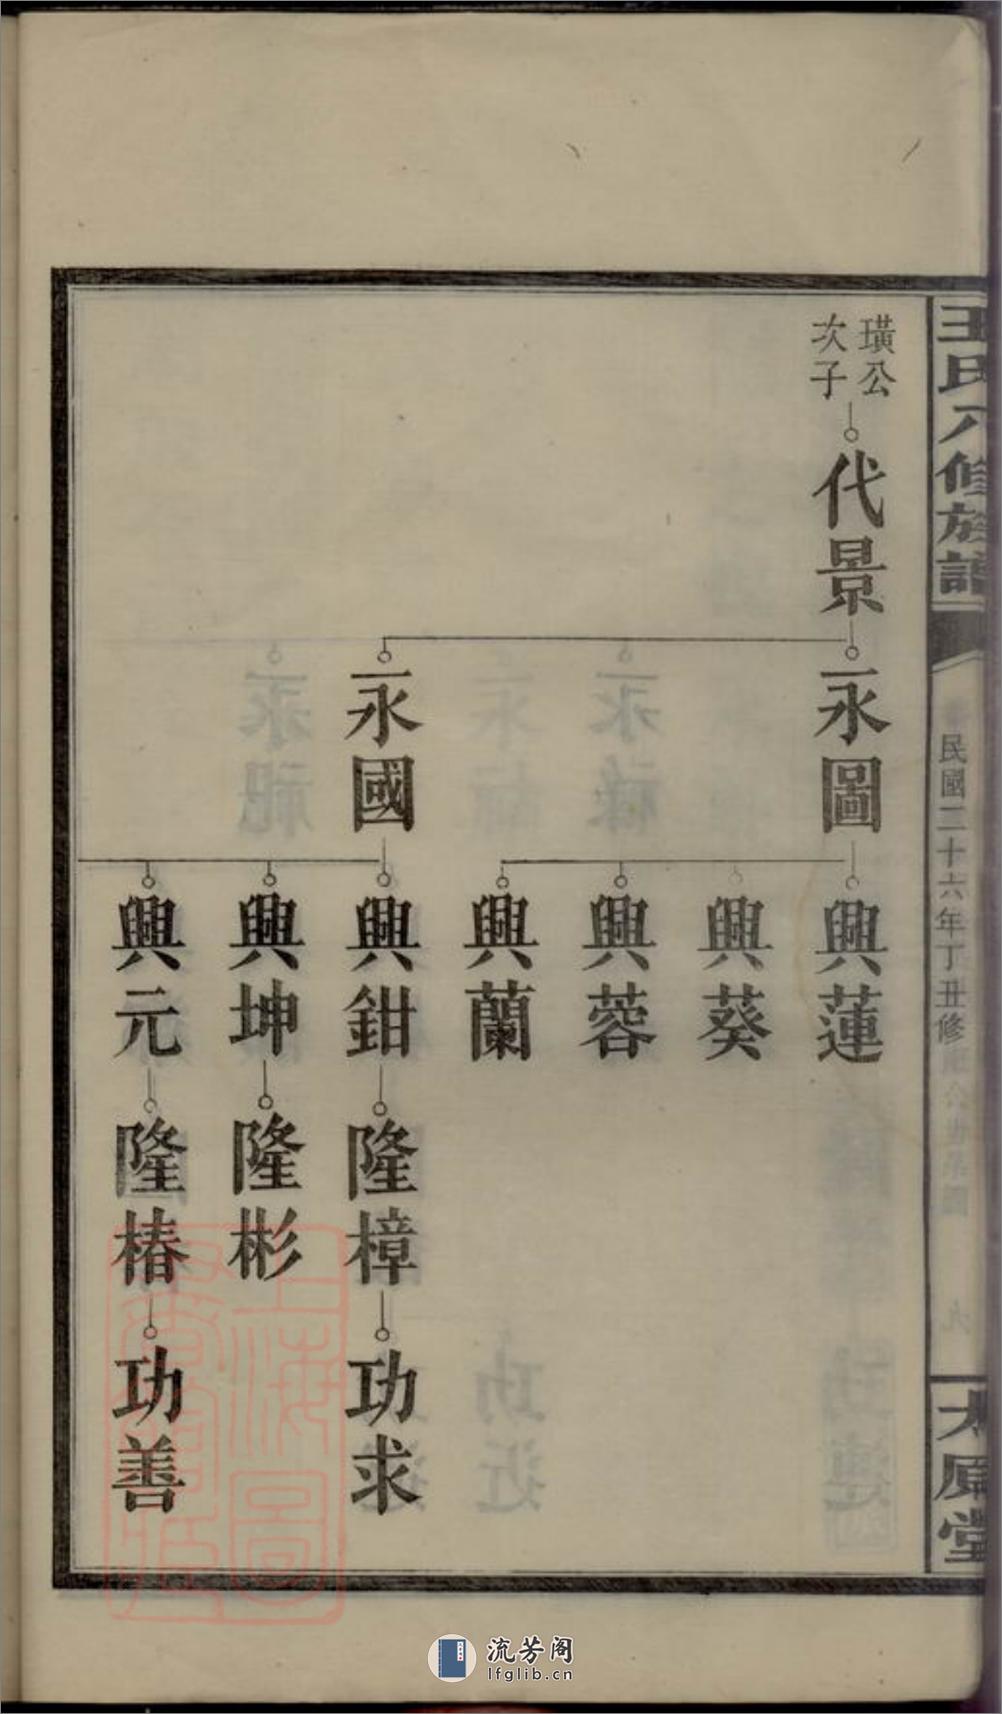 王氏八修族譜
民國二十六年丁丑修
太原堂
璜公
次子
代景
永圖
永國
興蓮
興葵
興蓉
興蘭
興鉗
興坤
興元
隆樟
隆彬
隆椿
功求
功善
上海圖
流芳阁
lfglib.cn